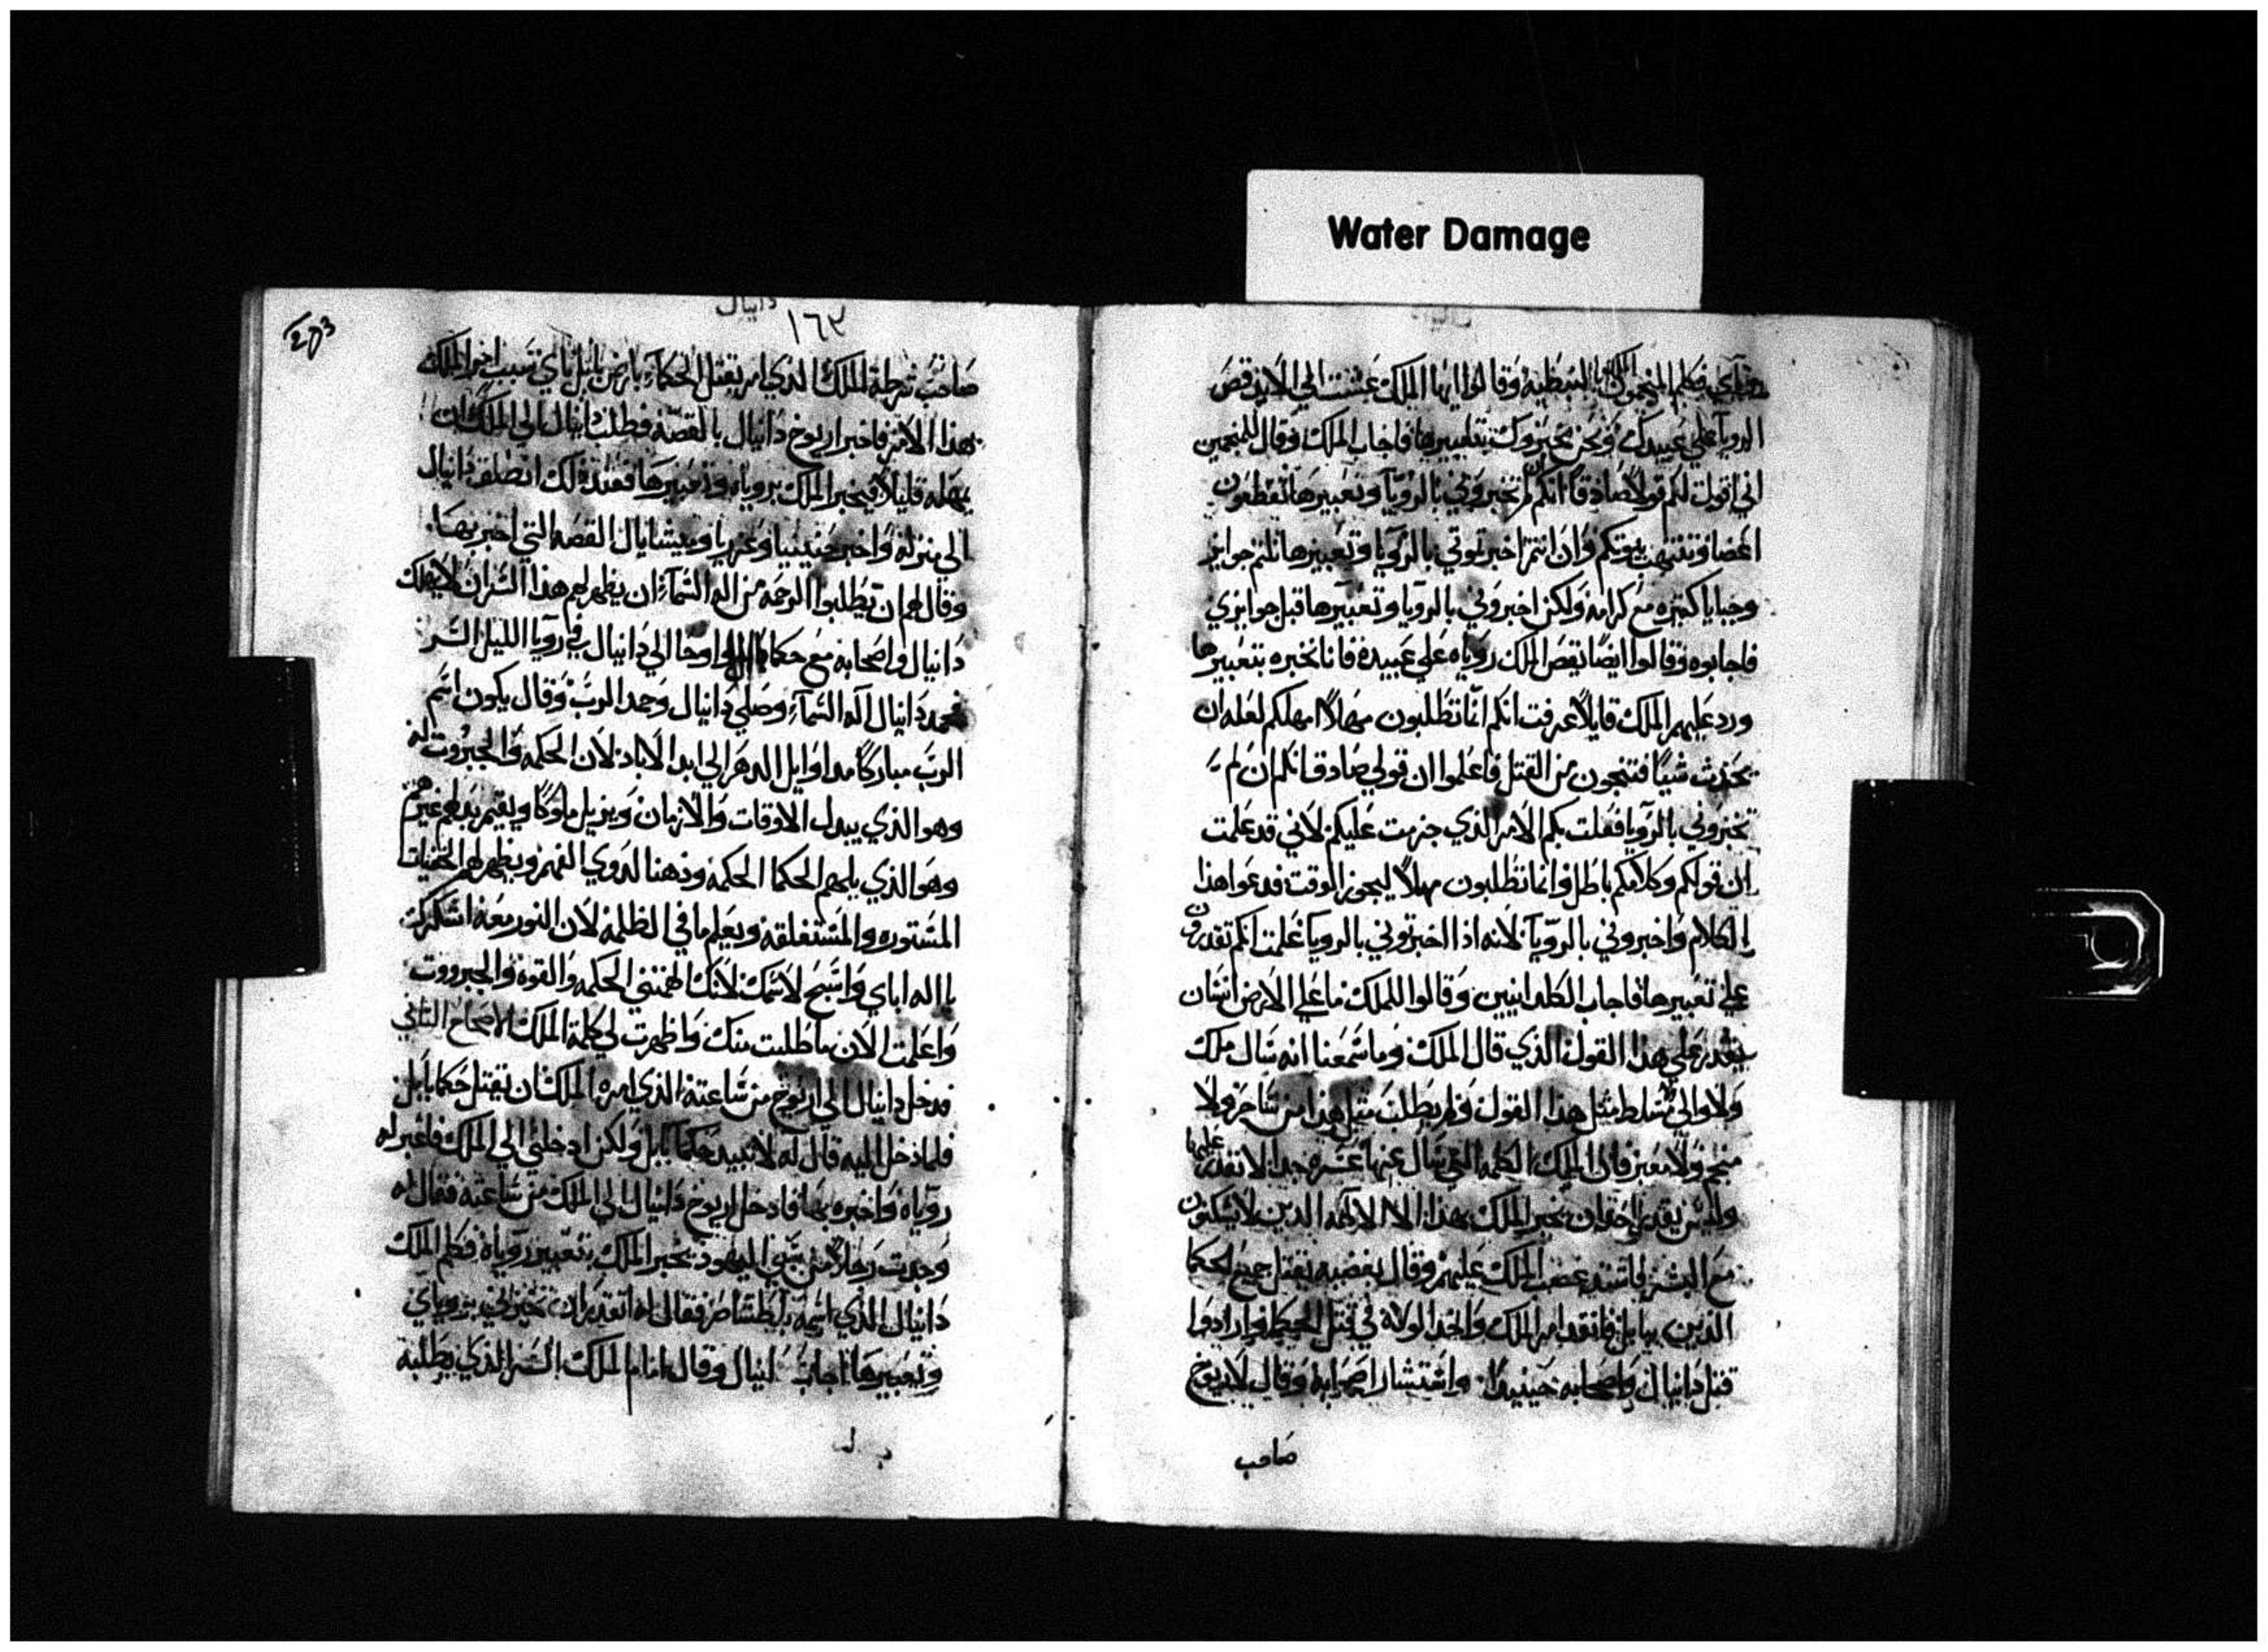 Water Damage
فكلم المنجمون الملك بالنبطيه وقالوا ايها الملك عشت الي الابد قص
الرويا علي عبيدك ونحن نخبروك بتعبيرها فاجاب الملك وقال للمنجمين
اني اقول لكم قولا صادقا انكم ان لم تخبروني بالرويا وتعبيرها تقطعون
اعضا وتنتهب بيوتكم وان انتم اخبرتموني بالرويا وتعبيرها نلتم جوايز
وحبايا كثيره مع كرامه ولكن اخبروني بالرويا وتعبيرها قبل جوايزي
فاجابوه وقالوا ايضا نقص الملك روياه علي عبيده فانا نخبره بتعبيرها
ورد عليهم الملك قايلا عرفت انكم انما تطلبون مهلا امهلكم لعله ان
يحدث شيا فتنجون من القتل فاعلموا ان قولي صادق انكم ان لم
تخبروني بالرويا فعلت بكم الامر الذي جزمت عليكم لاني قد علمت
ان قولكم وكلامكم باطل وانما تطلبون مهلا ليجوز الوقت فدعوا هذا
الكلام واخبروني بالرويا لانه اذا اخبرتموني بالرويا علمت انكم تقدرون
علي تعبيرها فاجاب الكلدانيين وقالوا للملك ما علي الارض انسان
يقدر علي هذا القول الذي قال الملك وما سمعنا انه سال ملك
ولا والي تسلط مثل هذا القول ولم يطلب مثل هذا من ساحر ولا
منجم ولا معبر فان الملك الكلمه التي سال عنها عسره جدا لا نقدر عليها
وليس يقدر احد ان يخبر الملك بهذا الا الالهه الذين لا يسكنون
مع البشر فاشتد غضب الملك عليهم وقال بغضبه يقتل جميع الحكما
الذين ببابل فانفذ امر الملك واخذ الولاة في قتل الحكما وارادوا
قتل دانيال واصحابه حينيدا واستشار اصحابه وقال لاريوخ
صاحب
203
دانيال
١٦٣
صاحب شرطة الملك الذي امر بقتل الحكماء بارض بابل باي سبب اخبر الملك
بهذا الامر فاخبر اريوخ دانيال بالقصه فطلب دانيال الي الملك ان
يمهله قليلا فيخبر الملك بروياه وتعبيرها فعند ذلك انطلق دانيال
الي منزله واخبر حننيا وعزريا وميشايال القصه التي اخبر بها
وقال لهم ان يطلبوا الرحمه من اله السماء ان يظهر لهم هذا السر ان لا يهلك
دانيال واصحابه مع حكما اوحا الي دانيال في رويا الليل السر
فحمد دانيال اله السماء وصلي دانيال وحمد الرب وقال يكون اسم
الرب مباركا مد اوايل الدهر الي ابد الاباد لان الحكمه والجبروت له
وهو الذي يبدل الاوقات والازمان ويزيل ملوكا ويقيم بدلهم غيرهم
وهو الذي يلهم الحكما الحكمه وذهنا لدوي الفهم ويظهر لهم الخفيات
المستوره والمستغلقه ويعلم ما في الظلمه لان النور معه اشكرك
يا اله اباي واسبح لاسمك لانك الهمتني الحكمه والقوه والجبرووت
واعلمت الان ما طلبت منك واظهرت لي كلمة الملك الاصحاح الثاني
فدخل دانيال الي اريوخ من ساعته الذي امره الملك ان يقتل حكما بابل
فلما دخل اليه قال له لا تبيد حكما بابل ولكن ادخلني الي الملك فاعبر له
روياه واخبره بها فادخل اريوخ دانيال الي الملك من ساعته فقال له
وجدت رجلا من سبي اليهود يخبر الملك بتعبير روياه فكلم الملك
دانيال الذي اسمه بلطشاصر فقال له اتقدر ان تخبرني بروياي
وتعبيرها اجاب دانيال وقال امام الملك السر الذي يطلبه